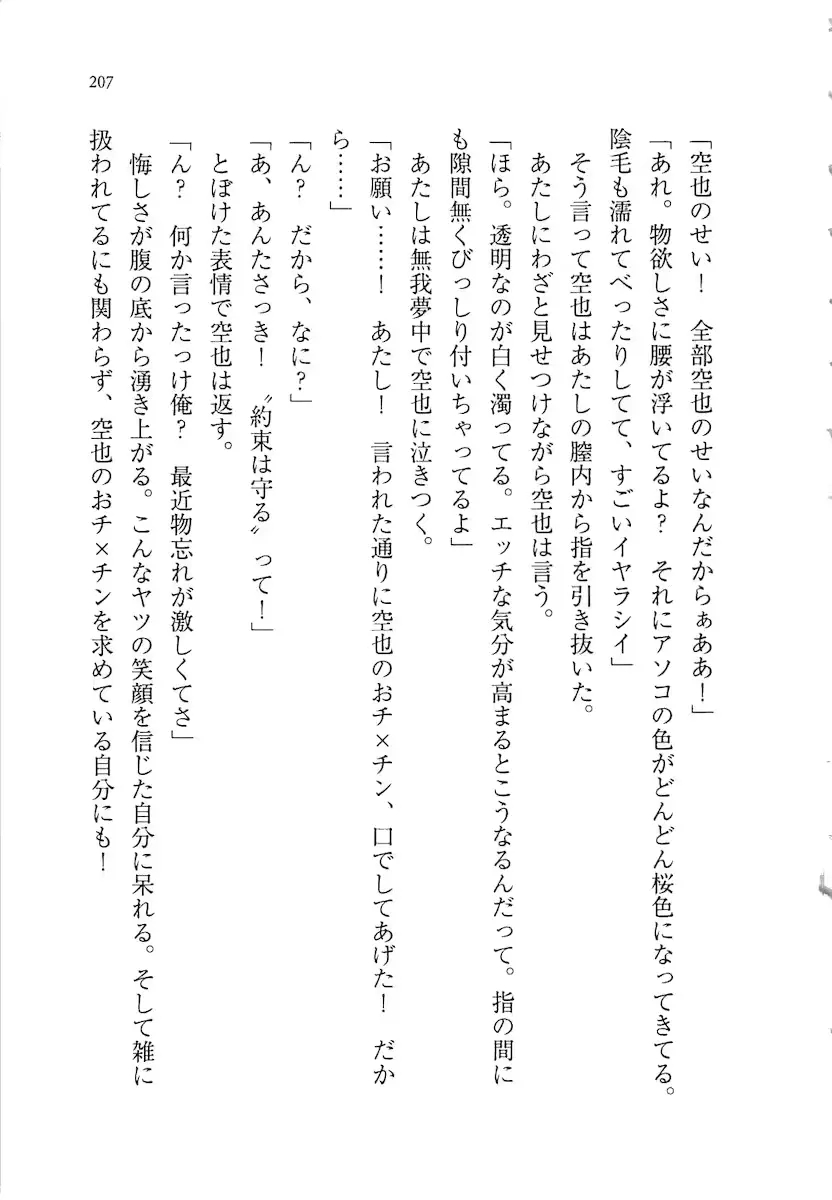 207
「空也のせい！　全部空也のせいなんだからぁああ！」
「あれ。物欲しさに腰が浮いてるよ？　それにアソコの色がどんどん桜色になってきてる。
陰毛も濡れてべったりしてて、すごいイヤラシイ」
　そう言って空也はあたしの膣内から指を引き抜いた。
　あたしにわざと見せつけながら空也は言う。
「ほら。透明なのが白く濁ってる。エッチな気分が高まるとこうなるんだって。指の間に
も隙間無くびっしり付いちゃってるよ」
　あたしは無我夢中で空也に泣きつく。
「お願い……！　あたし！　言われた通りに空也のおチ×チン、口でしてあげた！　だか
ら……」
「ん？　だから、なに？」
「あ、あんたさっき！　〝約束は守る〟って！」
　とぼけた表情で空也は返す。
「ん？　何か言ったっけ俺？　最近物忘れが激しくてさ」
　悔しさが腹の底から湧き上がる。こんなヤツの笑顔を信じた自分に呆れる。そして雑に
扱われてるにも関わらず、空也のおチ×チンを求めている自分にも！